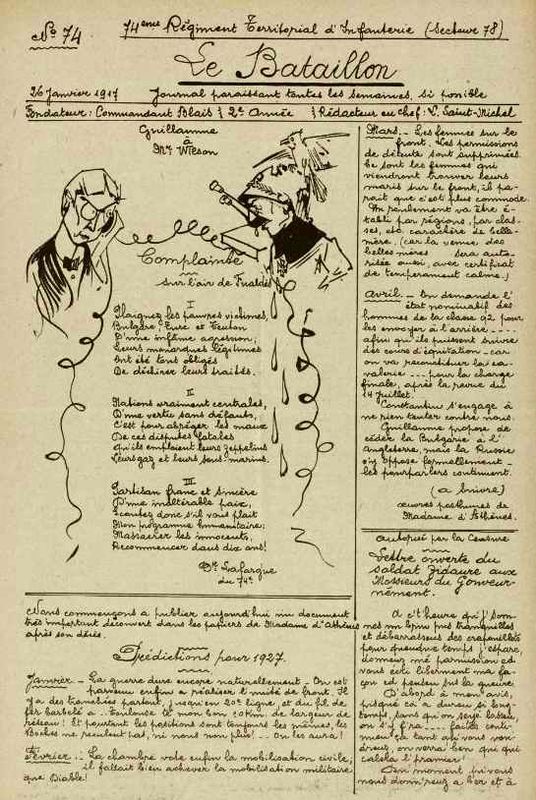 No 74
74eme Régiment Territorial d'Infanterie (Secteur 78)
Le Bataillon
26 Janvier 1917 Journal paraissant toutes les semaines, si posible
Fondateur: Commandant Blais | 2e Année | Rédacteur en chef: L. Saint-Michel
Guillaume
à
Mr Wilson
Complainte
sur l'air de Fualdès
I
Plaignez les pauvres victimes,
Bulgare, Turc et Teuton
D'une infâme agression;
Leurs monarques légitimes
Ont été tous obligés
De déchirer leurs traités.
II
Nations vraiment centrales,
D'une vertu sans défauts,
C'est pour abréger les maux
De ces disputes fatales
Qu'ils emploient leurs zeppelins
Leurs gaz et leurs sous-marins.
III
Partisan franc et sincère
D'une inaltérable paix,
Ecoutez donc s'il vous plait
Mon programme humanitaire:
Massacrer les innocents,
Recommencer dans dix ans!
Dr Lafargue
du 74e
Nous commençons a publier aujourd'hui un document
très important découvert dans les papiers de Madame d'Athènes
après son décès.
Prédictions pour 1927.
Janvier - La guerre dure encore naturellement - On est
parvenu enfin a réaliser l'unité de front. Il
y a des tranchées partout, jusqu'en 20e ligne, et du fil de
fer barbelé a Toulouse le mon 10 Km. de largeur de
réseau! Et pourtant les positions sont toujours les mêmes, les
Boches ne peuvent pas, ni nous non plus!.. On les aura!
Février.- La chambre vote enfin la mobilisation civile,
il fallait bien achever la mobilisation militaire
que Diable!
Mars.- Les femmes sur le
front. Les permissions
de détente sont supprimées.
Ce sont les femmes qui
viendront trouver leurs
maris sur le front, il pa-
rait que c'est plus commode.
Un roulement va être é-
tabli par régions, par clas-
ses, etc. caractère de belle-
mère. (car la venue des
belles mères sera auto-
risée aussi, avec certificat
de temperament calme.)
Avril.- On demande l'
état nominatif des
hommes de la classe 92, pour
les envoyer à l'arrière ....
afin qu'ils puissent suivre
des cours d'équitation - car
on va reconstituer la ca-
valerie .... pour la charge
finale, après la revue du
14 Juillet.
Constantin s'engage à
ne rien tenter contre nous.
Guillaume propose de
céder la Bulgarie à l'
Angleterre, mais la Russie
s'y oppose formellement -
les pourparlers continuent.
(a suivre)
œuvres posthumes de
Madame d'Athènes.
autorisé par la Censure
Lettre ouverte du
soldat Zidaure aux
Messieurs du Gouver-
nement.
A c't'heure qu'j'som-
mes un p'peu plus tranquilles
et débarrassés des crapouillots
pour quenque temps j'espère,
donnez mé parmission ed
vous ecri librement ma fa-
çon ed penseu su la guerre
D'abord à mon avis,
pisqué ça a dureu si long-
temps sans qu'on soye battu,
on s'y f'ra.... faites conti-
nueu ça tant qui vous von-
dreuz, on verra ben qui qui
caleha l'premier!
Qeu moment qu'vous
nous donn'reuz a ber et à